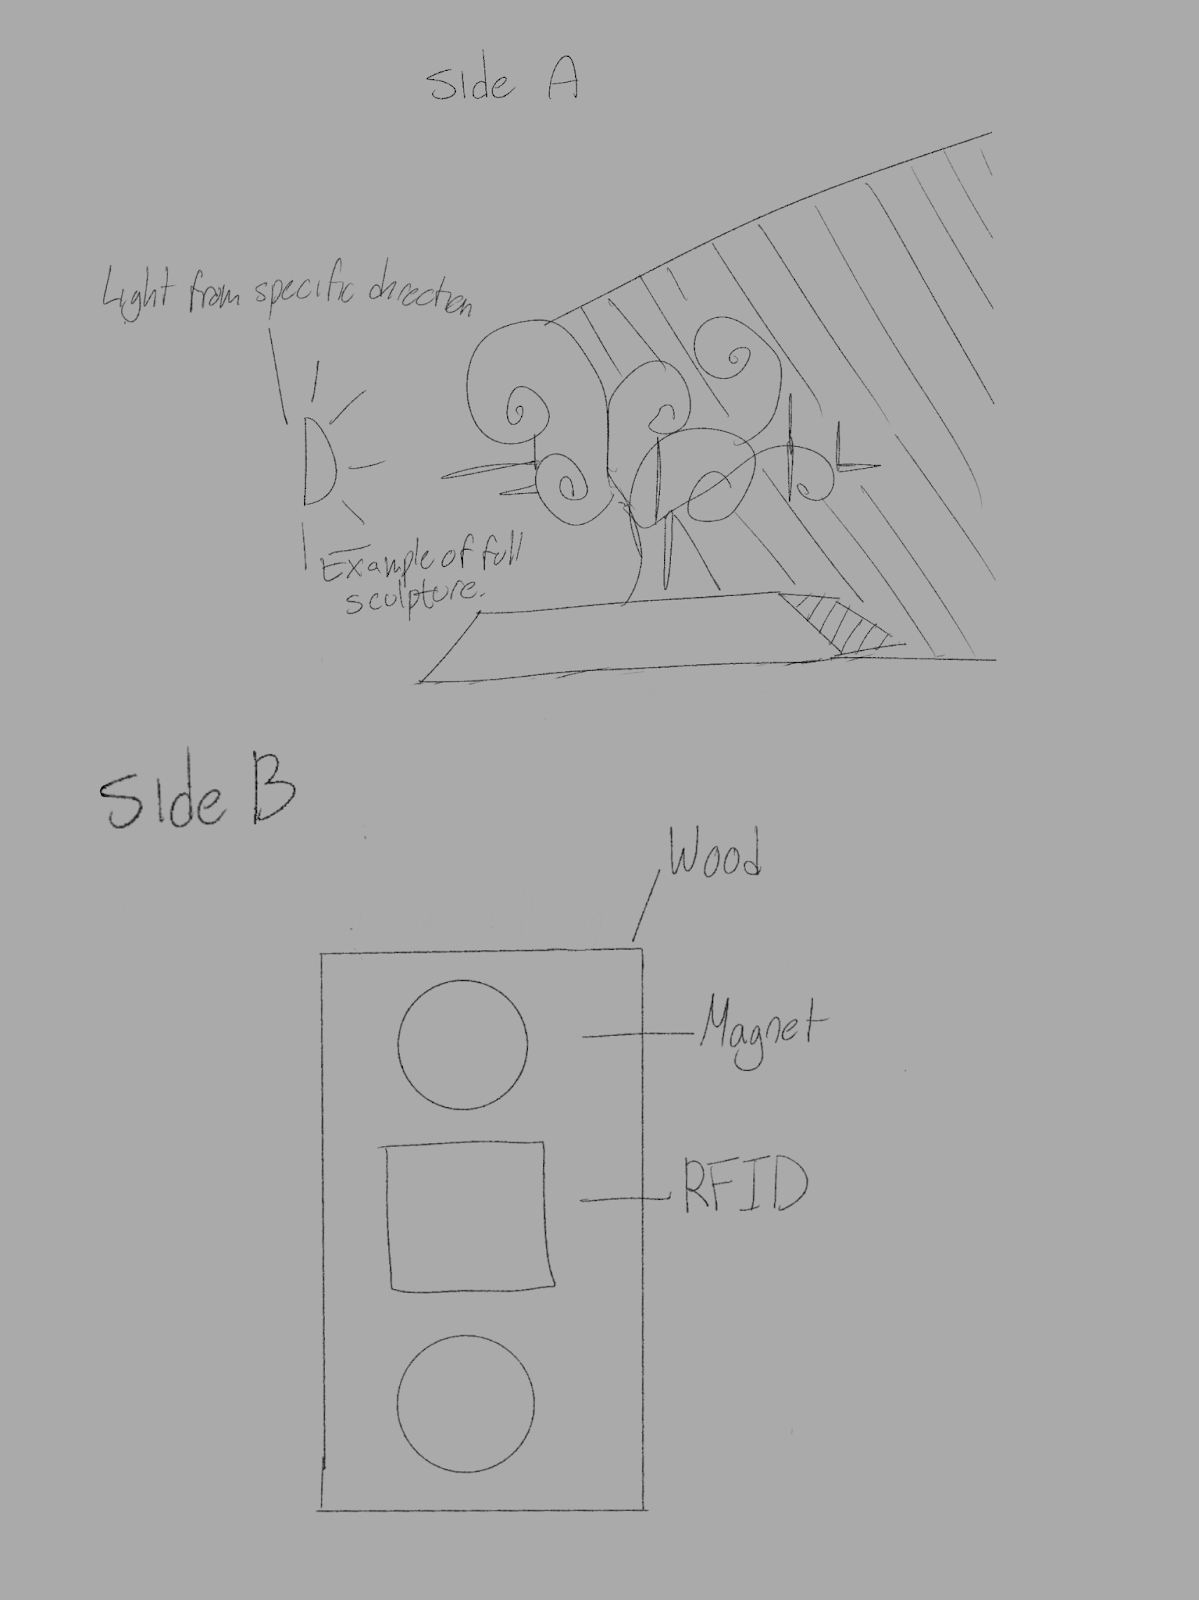 Side A
Light from specific direction
Example of full
sculpture.
Side B
Wood
Magnet
RFID